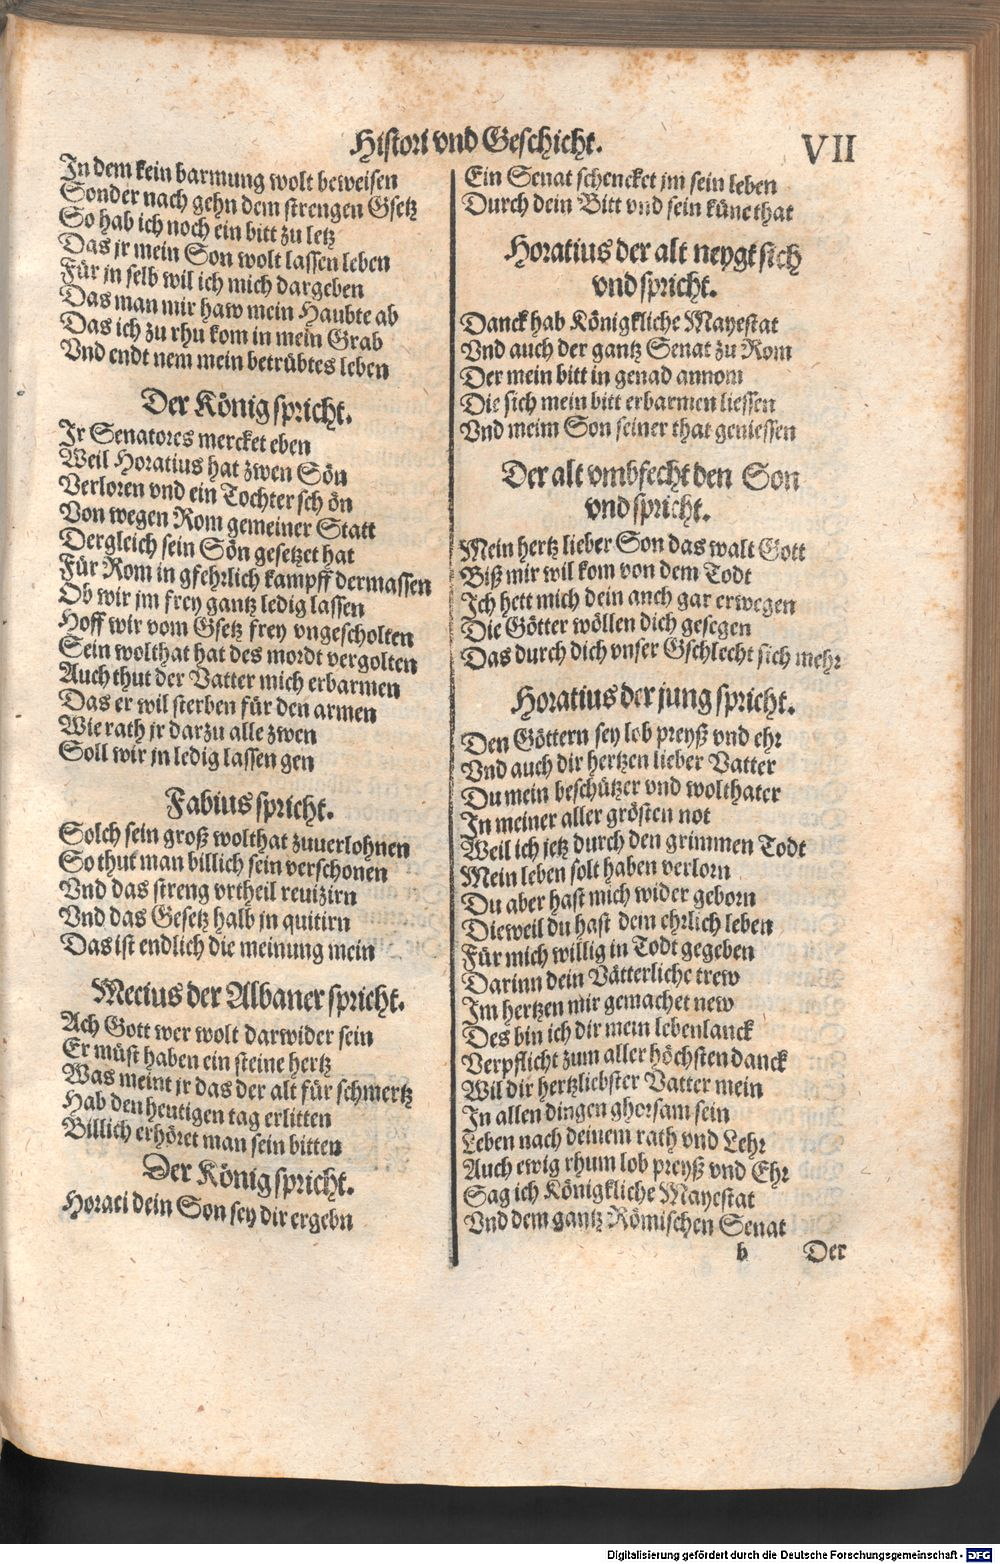 Histori vnd Geschicht.
VII
In dem kein barmung wolt beweisen
Sonder nach gehn dem strengen Gsetz
So hab ich noch ein bitt zu letz
Das jr mein Son wolt lassen leben
Für jn selb wil ich mich dargeben
Das man mir haw mein Haubte ab
Das ich zu rhu kom in mein Grab
Vnd endt nem mein betrübtes leben
Der König spricht.
Jr Senatores mercket eben
Weil Horatius hat zwen Sön
Verloren vnd ein Tochter schön
Von wegen Rom gemeiner Statt
Dergleich sein Sön gesetzet hat
Für Rom in gfehrlich kampff dermassen
Ob wir jm frey gantz ledig lassen
Hoff wir vom Gsetz frey vngescholten
Sein wolthat hat des mordt vergolten
Auch thut der Vatter mich erbarmen
Das er wil sterben für den armen
Wie rath jr darzu alle zwen
Soll wir jn ledig lassen gen
Fabius spricht.
Solch sein groß wolthat zuuerlohnen
So thut man billich sein verschonen
Vnd das streng vrtheil reuizirn
Vnd das Gesetz halb jn quitirn
Das ist endlich die meinung mein
Mecius der Albaner spricht.
Ach Gott wer wolt darwider sein
Er müst haben ein steine hertz
Was meint jr das der alt für schmertz
Hab den heutigen tag erlitten
Billich erhöret man sein bitten
Der König spricht.
Horaci dein Son sey dir ergebn
Ein Senat schencket jm sein leben
Durch dein Bitt vnd sein küne that
Horatius der alt neygt sich
vnd spricht.
Danck hab Königkliche Mayestat
Vnd auch der gantz Senat zu Rom
Der mein bitt in genad annom
Die sich mein bitt erbarmen liessen
Vnd meim Son seiner that geniessen
Der alt vmbfecht den Son
vnd spricht.
Mein hertz lieber Son das walt Gott
Biß mir wil kom von dem Todt
Ich hett mich dein auch gar erwegen
Die Götter wöllen dich gesegen
Das durch dich vnser Gschlecht sich mehr
Horatius der jung spricht.
Den Göttern sey lob preyß vnd ehr
Vnd auch dir hertzen lieber Vatter
Du mein beschützer vnd wolthater
In meiner aller grösten not
Weil ich jetz durch den grimmen Todt
Mein leben solt haben verlorn
Du aber hast mich wider geborn
Dieweil du hast dem ehrlich leben
Für mich willig in Todt gegeben
Darinn dein Vätterliche trew
Im hertzen mir gemachet new
Des bin ich dir mein lebenlanck
Verpflicht zum aller höchsten danck
Wil dir hertzliebster Vatter mein
In allen dingen ghorsam sein
Leben nach deinem rath vnd Lehr
Auch ewig rhum lob preyß vnd Ehr
Sag ich Königkliche Mayestat
Vnd dem gantz Römischen Senat
b Der
Digitalisierung gefördert durch die Deutsche Forschungsgemeinschaft - DFG